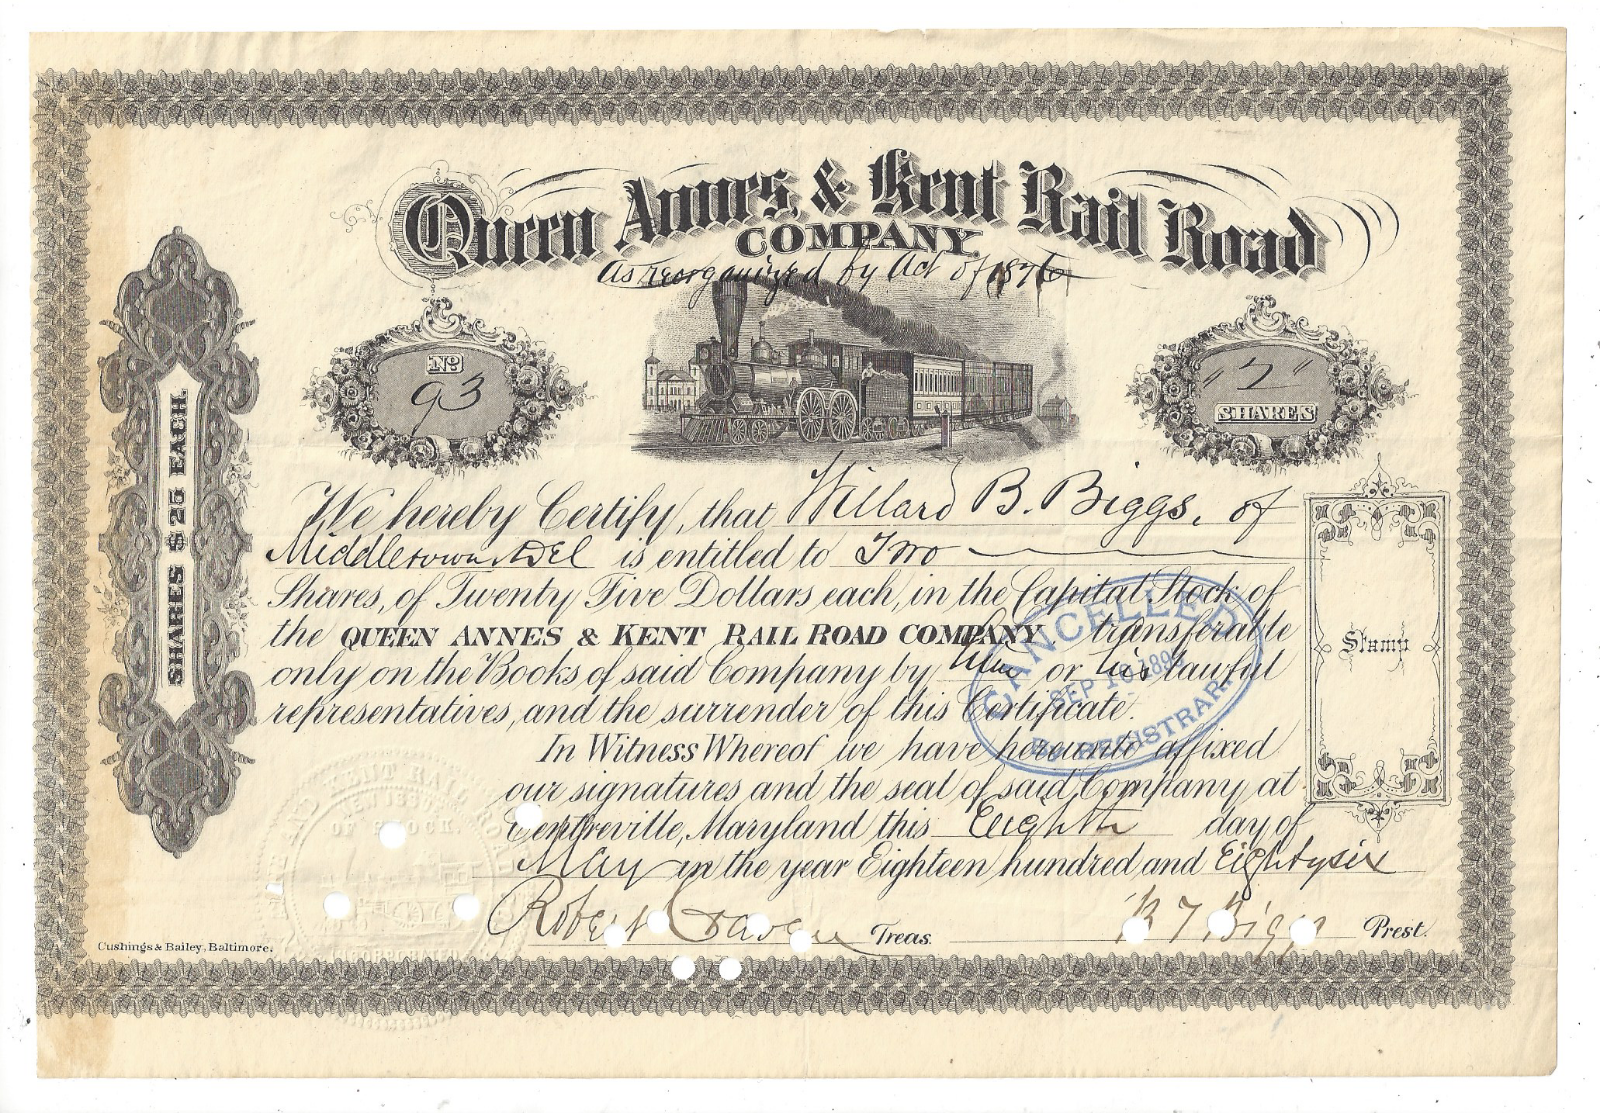 Queen Annes, & Kent Rail Road
COMPANY.
As reorganized by Act of 1876
No
93
"2"
SHARES
SHARES $25 EACH.
We hereby Certify, that Willard B. Biggs, of
Middletown Del is entitled to Two
Shares, of Twenty Five Dollars each, in the Capital Stock of
the QUEEN ANNES & KENT RAIL ROAD COMPANY transferable
only on the Books of said Company by him or his lawful
representatives, and the surrender of this Certificate.
In Witness Whereof we have hereunto affixed
our signatures and the seal of said Company, at
Centreville, Maryland this Eighth day of
May in the year Eighteen hundred and Eightysix
Robert Craven Treas. B T Biggs Prest.
Stamp
CANCELLED
SEP 18 189
REGISTRAR.
KENT RAIL RO
OF STOCK.
INCORPORATED
Cushings & Bailey, Baltimore.